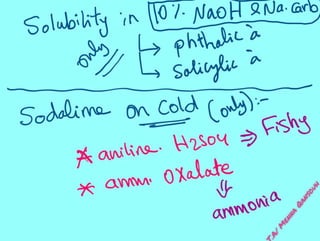 Solubility in 10% NaOH & Na. Carb
only → phthalic a
→ Salicylic a
Sodalime on Cold (only):-
* aniline. H2SO4 ⇒ Fishy
* amm. Oxalate
⇓
ammonia